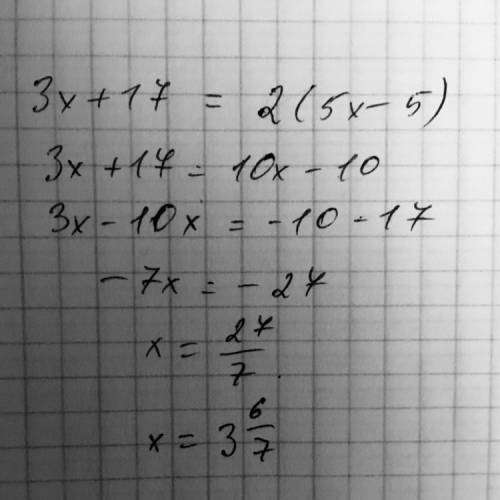 3x + 17 = 2(5x - 5)
3x + 17 = 10x - 10
3x - 10x = -10 - 17
-7x = -27
x = 27/7
x = 3 6/7